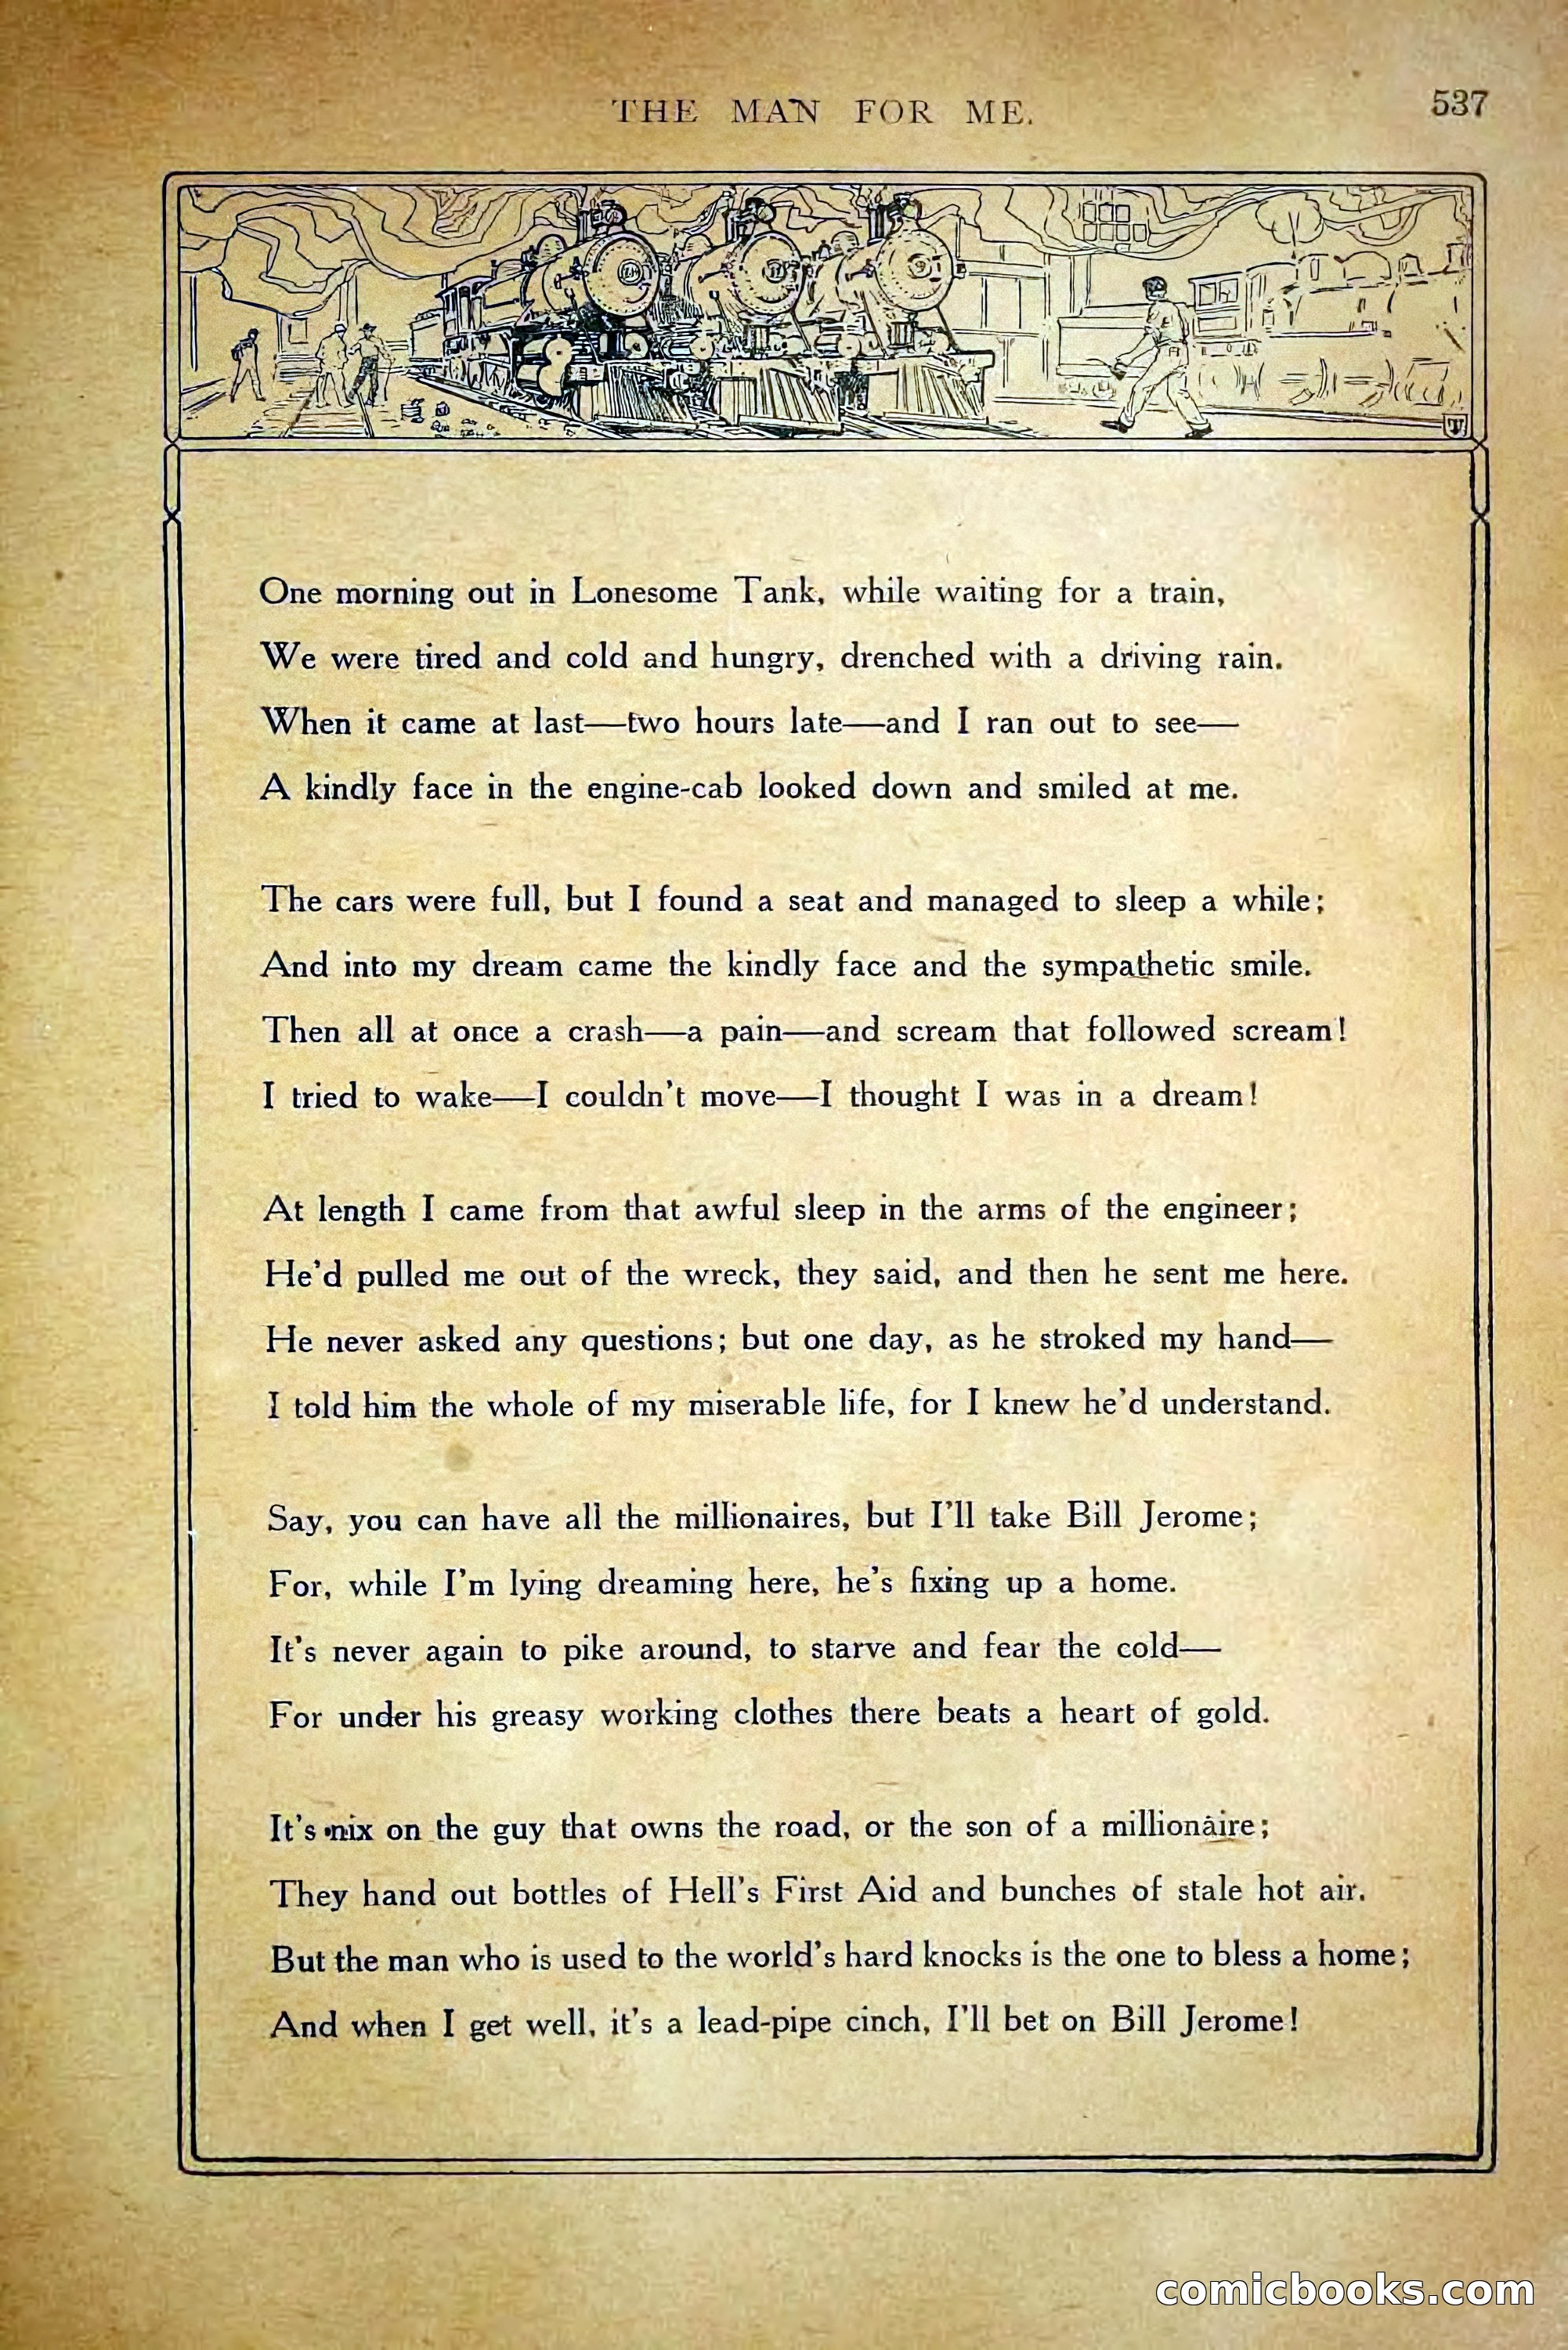 THE MAN FOR ME.
537
One morning out in Lonesome Tank, while waiting for a train,
We were tired and cold and hungry, drenched with a driving rain.
When it came at last—two hours late—and I ran out to see—
A kindly face in the engine-cab looked down and smiled at me.
The cars were full, but I found a seat and managed to sleep a while;
And into my dream came the kindly face and the sympathetic smile.
Then all at once a crash—a pain—and scream that followed scream!
I tried to wake—I couldn't move—I thought I was in a dream!
At length I came from that awful sleep in the arms of the engineer;
He'd pulled me out of the wreck, they said, and then he sent me here.
He never asked any questions; but one day, as he stroked my hand—
I told him the whole of my miserable life, for I knew he'd understand.
Say, you can have all the millionaires, but I'll take Bill Jerome;
For, while I'm lying dreaming here, he's fixing up a home.
It's never again to pike around, to starve and fear the cold—
For under his greasy working clothes there beats a heart of gold.
It's nix on the guy that owns the road, or the son of a millionaire;
They hand out bottles of Hell's First Aid and bunches of stale hot air.
But the man who is used to the world's hard knocks is the one to bless a home;
And when I get well, it's a lead-pipe cinch, I'll bet on Bill Jerome!
comicbooks.com